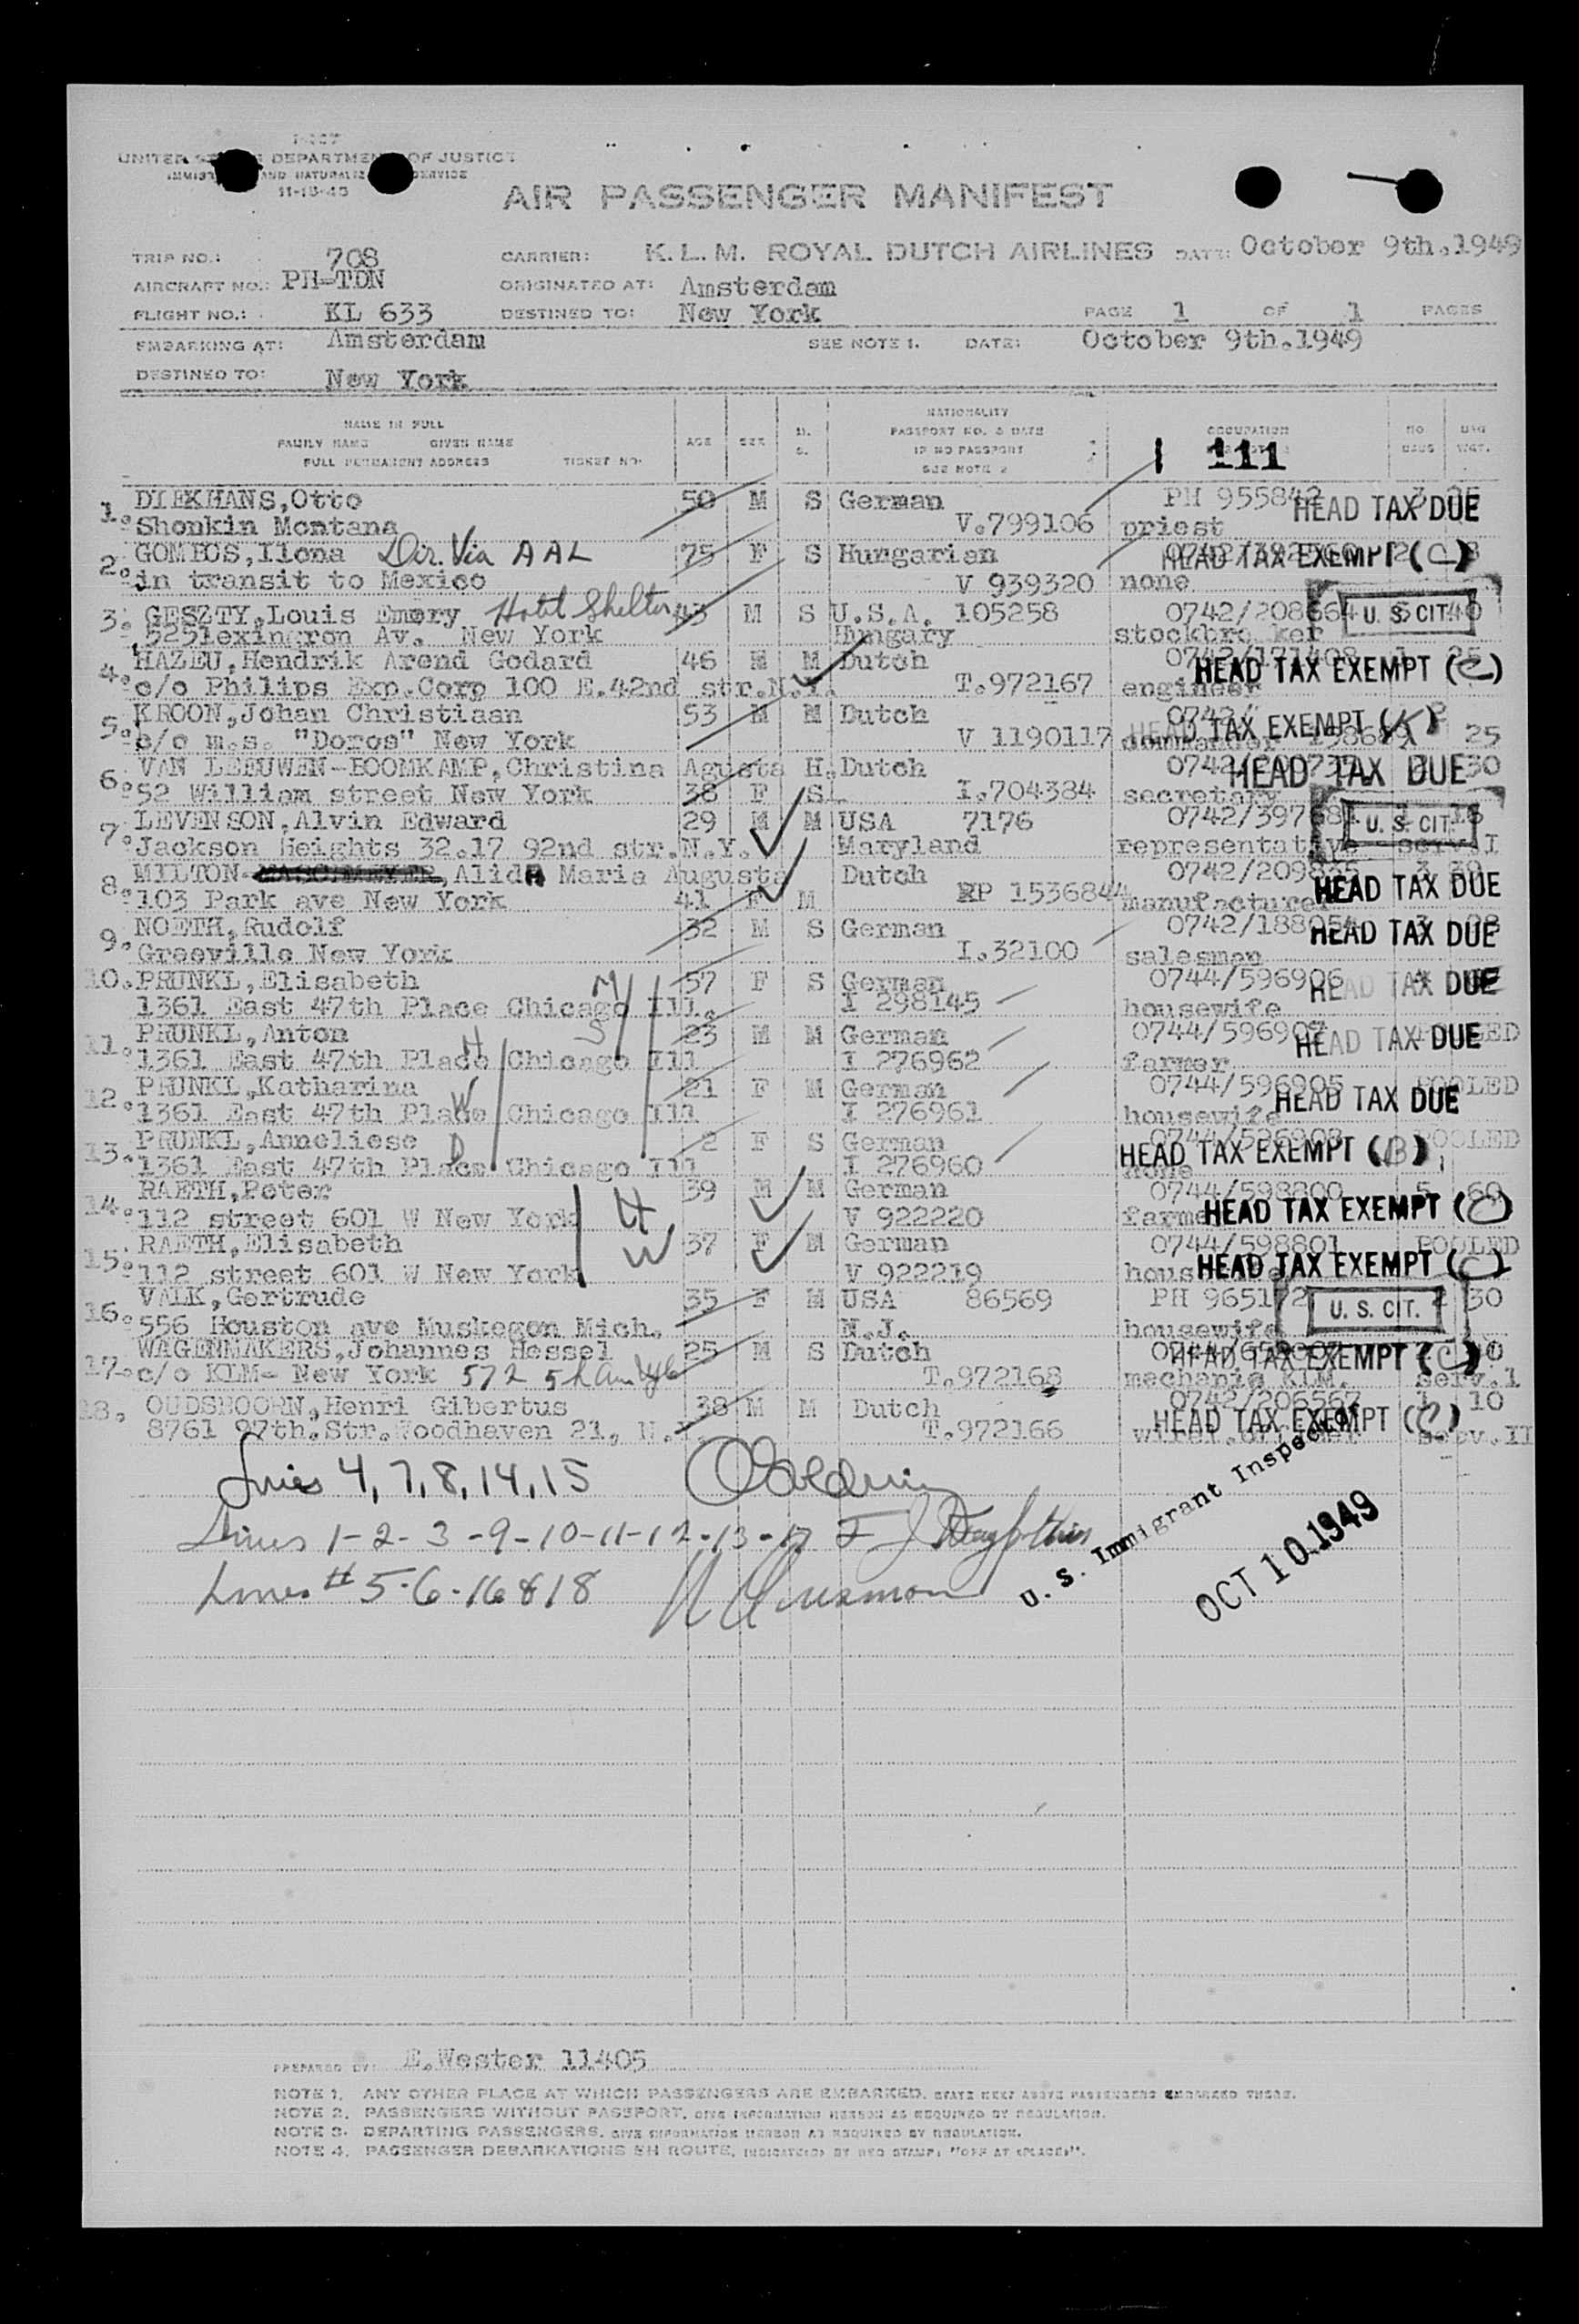 I-467
UNITED STATES DEPARTMENT OF JUSTICE
IMMIGRATION AND NATURALIZATION SERVICE
11-15-45
AIR PASSENGER MANIFEST
TRIP NO.: 708 CARRIER: K.L.M. ROYAL DUTCH AIRLINES DATE: October 9th.1949
AIRCRAFT NO.: PH-TDN ORIGINATED AT: Amsterdam
FLIGHT NO.: KL 633 DESTINED TO: New York PAGE 1 OF 1 PAGES
EMBARKING AT: Amsterdam SEE NOTE 1. DATE: October 9th.1949
DESTINED TO: New York
NAME IN FULL
FAMILY NAME GIVEN NAME
FULL PERMANENT ADDRESS TICKET NO.
AGE SEX M. S.
NATIONALITY
PASSPORT NO. & DATE
IF NO PASSPORT
SEE NOTE 2
OCCUPATION
NO BAGS BAG WGT.
1 111
1. DIEKHANS,Otto 50 M S German PH 955842 HEAD TAX DUE
Shonkin Montana V.799106 priest
2. GOMBOS,Ilona Dir. Via AAL 75 F S Hungarian HEAD TAX EXEMPT (C)
in transit to Mexico V 939320 none
3. GESZTY,Louis Emery Hotel Shelton 43 M S U.S.A. 105258 0742/208664 5 40 U. S. CIT.
525lexingron Av. New York Hungary stockbro ker
4. HAZEU,Hendrik Arend Godard 46 M M Dutch 0742/171408 1 25
c/o Philips Exp.Corp 100 E.42nd str.N.Y. T.972167 engineer HEAD TAX EXEMPT (C)
5. KROON,Johan Christiaan 53 M M Dutch 0742/ HEAD TAX EXEMPT
c/o m.s. "Doros" New York V 1190117 commander 25
6. VAN LEEUWEN-BOOMKAMP,Christina Agusta H.Dutch HEAD TAX DUE 30
52 William street New York 38 F S I.704384 secretary
7. LEVENSON,Alvin Edward 29 M M USA 7176 U. S. CIT.
Jackson Heights 32.17 92nd str.N.Y. Maryland representative serv.I
8. MILTON- ,Alida Maria Augusta Dutch HEAD TAX DUE
103 Park ave New York 41 F M RP 1536844 manufacturer
9. NOETH,Rudolf 32 M S German HEAD TAX DUE
Greeville New York I.32100 salesman
10. PRUNKL,Elisabeth M 57 F S German 0744/596906 HEAD TAX DUE
1361 East 47th Place Chicago Ill. I 298145 housewife
11. PRUNKL,Anton S H 23 M M German 0744/596907 HEAD TAX DUE
1361 East 47th Place Chicago Ill I 276962 farmer
12. PRUNKL,Katharina W 21 F M German 0744/596905 POOLED HEAD TAX DUE
1361 East 47th Place Chicago Ill I 276961 housewife
13. PRUNKL,Anneliese D 2 F S German 0744/596908 POOLED
1361 East 47th Place Chicago Ill I 276960 none HEAD TAX EXEMPT (B)
14. RAETH,Peter H 39 M M German 0744/598800 5 60
112 street 601 W New York V 922220 farmer HEAD TAX EXEMPT (C)
15. RAETH,Elisabeth W 37 F M German 0744/598801 POOLED
112 street 601 W New York V 922219 HEAD TAX EXEMPT (C)
16. VALK,Gertrude 35 F M USA 86569 PH 965172 2 30 U. S. CIT.
556 Houston ave Muskegon Mich. N.J. housewife
17. WAGENMAKERS,Johannes Hessel 25 M S Dutch HEAD TAX EXEMPT (C)
c/o KLM- New York 572 5th T.972168 mechanic KLM. serv.1
18. OUDSHOORN,Henri Gibertus 38 M M Dutch 0742/206567 1 10
8761 97th.Str.Woodhaven 21, N.Y. T.972166 HEAD TAX EXEMPT (C) serv.II
Lines 4, 7, 8, 14, 15
Lines 1-2-3-9-10-11-12-13-17
Lines # 5-6-16 & 18
U. S. Immigrant Inspector
OCT 10 1949
PREPARED BY: E.Wester 11405
NOTE 1. ANY OTHER PLACE AT WHICH PASSENGERS ARE EMBARKED, STATE NEXT ABOVE PASSENGERS EMBARKED THERE.
NOTE 2. PASSENGERS WITHOUT PASSPORT, GIVE INFORMATION HEREON AS REQUIRED BY REGULATION.
NOTE 3. DEPARTING PASSENGERS, GIVE INFORMATION HEREON AS REQUIRED BY REGULATION.
NOTE 4. PASSENGER DEBARKATIONS EN ROUTE, INDICATE(D) BY RED STAMP: "OFF AT (PLACE)".